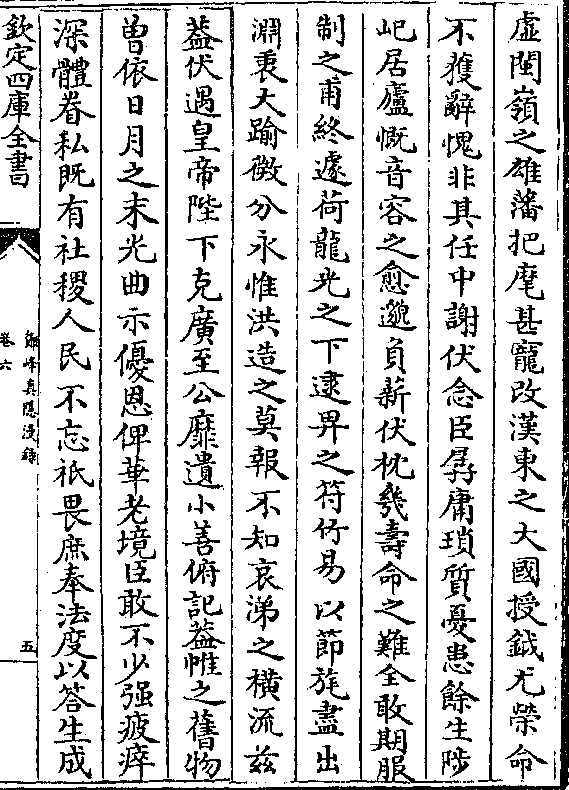 虛閩嶺之雄藩把麾甚寵改漢東之大國授鉞尤榮命
不獲辭愧非其任中謝伏念臣孱庸瑣質憂患餘生陟
屺居廬慨音容之愈邈負薪伏枕幾壽命之難全敢期服
制之甫終遽荷龍光之下逮畀之符竹易以節旄盡出
淵衷大踰微分永惟洪造之莫報不知哀涕之橫流兹
葢伏遇皇帝陛下克廣至公靡遺小善俯記葢帷之舊物
曽依日月之末光曲示優恩俾華老境臣敢不少强疲瘁
深體眷私既有社稷人民不忘祇畏庶奉法度以答生成
欽定四庫全書
鄮峰真隱漫錄
卷六
五